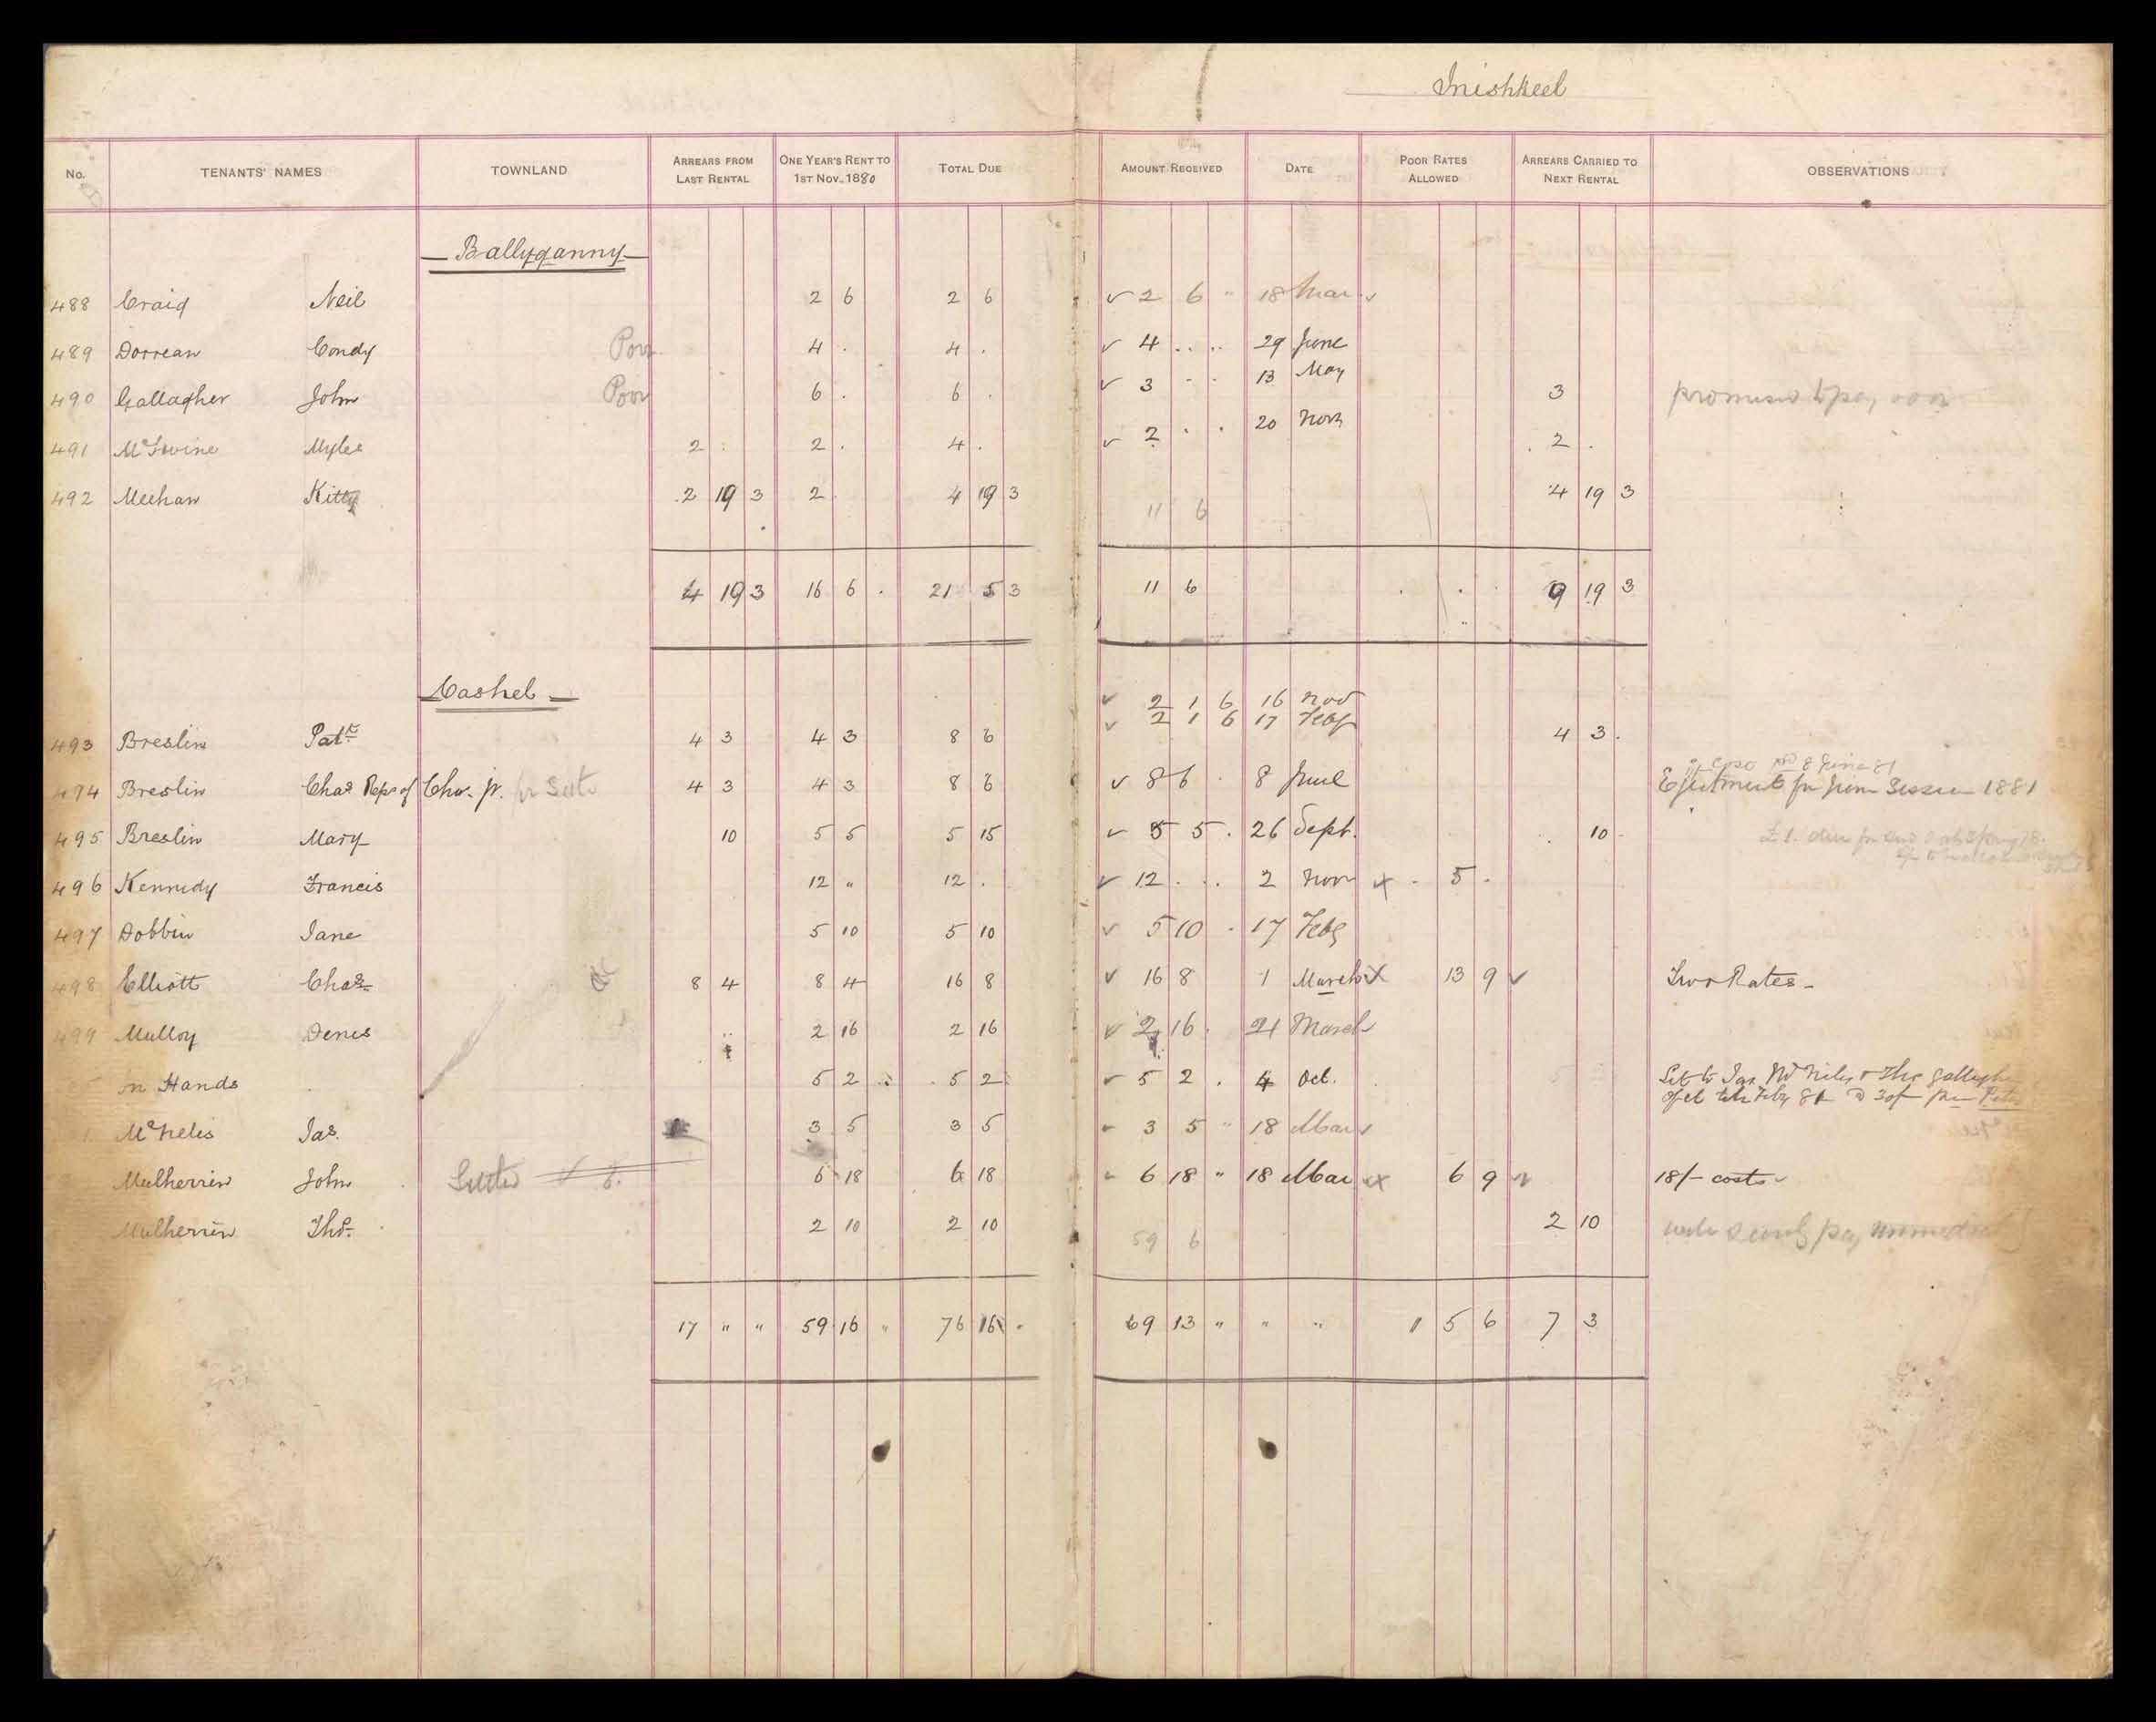 Inishkeel
No. TENANTS' NAMES TOWNLAND ARREARS FROM LAST RENTAL ONE YEAR'S RENT TO 1ST NOV. 1880 TOTAL DUE AMOUNT RECEIVED DATE POOR RATES ALLOWED ARREARS CARRIED TO NEXT RENTAL OBSERVATIONS
Ballyganny
488 Craig Neil 2 6 2 6 ✓ 2 6 " 18 Mar ✓
489 Dorrean Condy Poor 4 . 4 . ✓ 4 . . 29 June
490 Gallagher John Poor 6 . 6 . ✓ 3 - - 13 May 3 promised to pay
491 McSwine Myles 2 . 2 . 4 . ✓ 2 . . 20 Novr 2 .
492 Meehan Kitty 2 19 3 2 4 19 3 4 19 3
11 6
4 19 3 16 6 . 21 5 3 11 6 9 19 3
Cashel
✓ 2 1 6 16 Nov
493 Breslin Patk 4 3 4 3 8 6 ✓ 2 1 6 17 Feby 4 3 .
494 Breslin Chas Reps of Chas. jr. 4 3 4 3 8 6 ✓ 8 6 . 8 June 8 June 81
Ejectment for June Session 1881
495 Breslin Mary 10 5 5 5 15 ✓ 5 5 . 26 Sept. 10 £1. due for
496 Kennedy Francis 12 " 12 . ✓ 12 . . 2 Novr x . 5 -
497 Dobbin Jane 5 10 5 10 ✓ 5 10 - 17 Feby
498 Elliott Chas 8 4 8 4 16 8 ✓ 16 8 1 March x 13 9 ✓ Two Rates -
499 Mulloy Denis 2 16 2 16 ✓ 2 16 . 21 March
In Hands 5 2 5 2 ✓ 5 2 . 4 Oct. Set to Jas McNelis & Thos Gallagher
McNelis Jas. 3 5 3 5 ✓ 3 5 " 18 Mar ✓
Mulherrin John 6 18 6 18 6 18 " 18 Mar x 6 9 ✓ 18/- costs
Mulherrin Thos. 2 10 2 10 2 10 pay immediately
59 6
17 " " 59 16 " 76 16 " 69 13 " " " 1 5 6 7 3